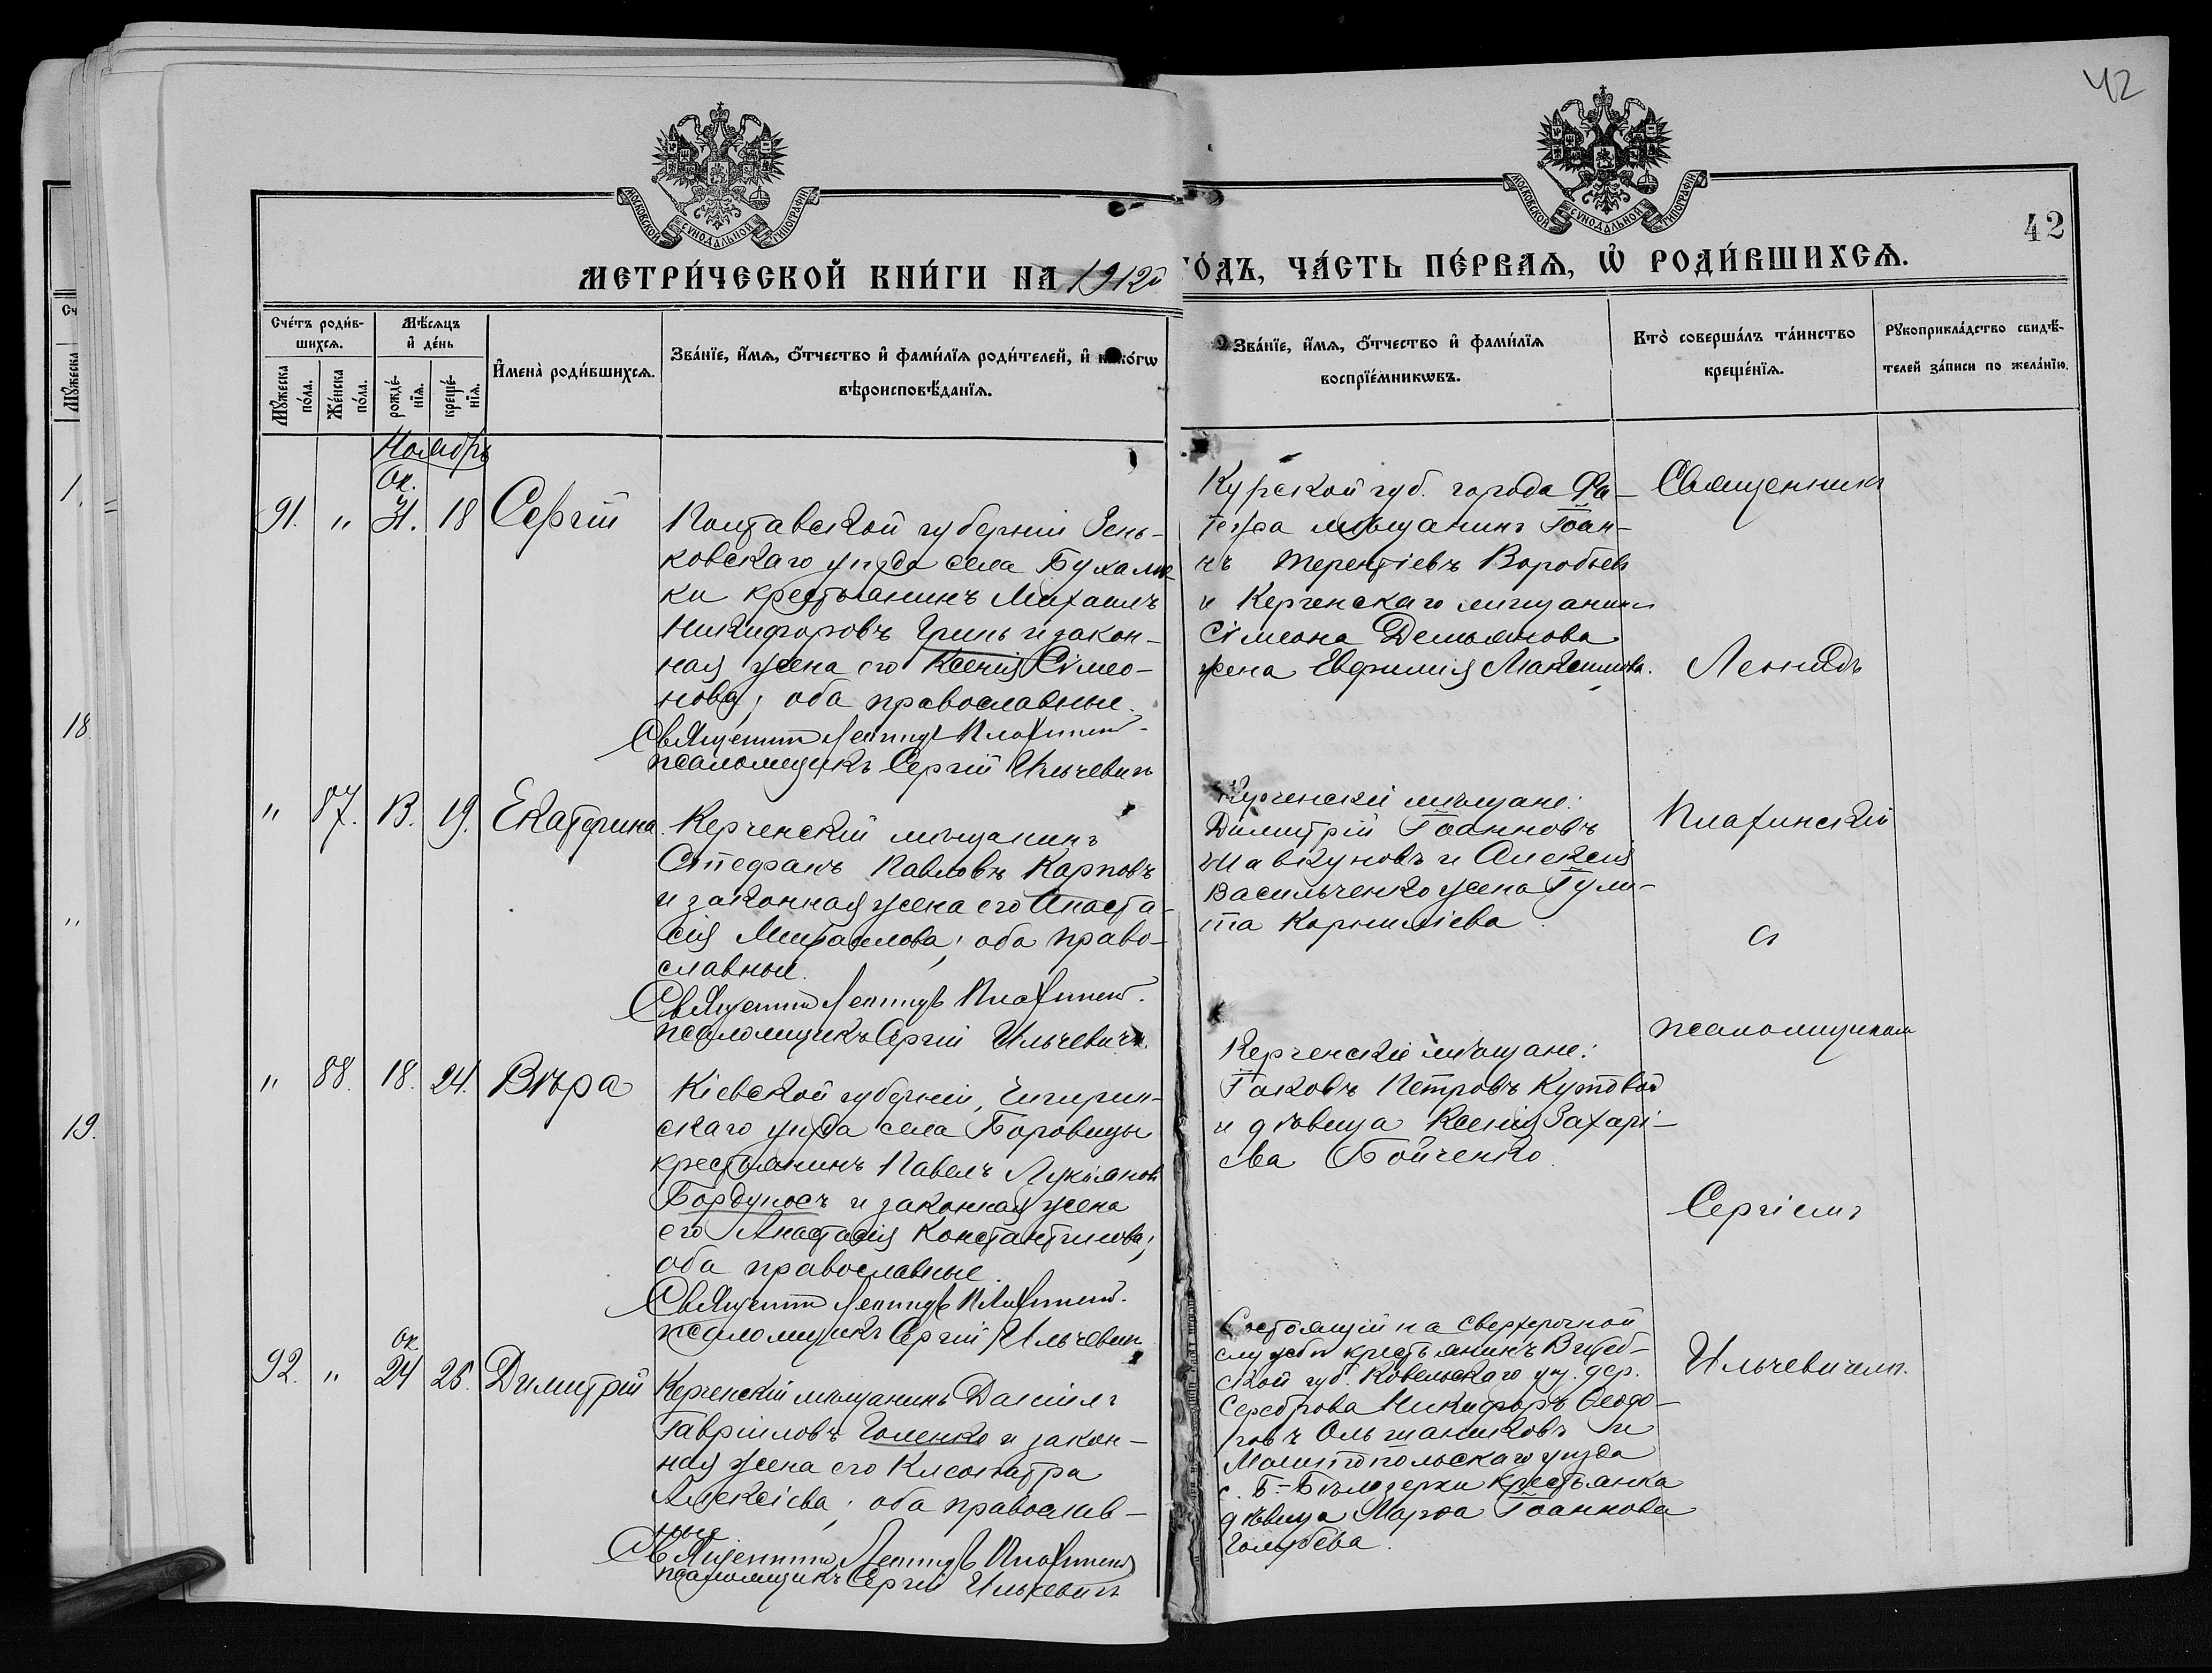 42
МОСКОВСКОЙ СУНОДАЛЬНОЙ ТИПОГРАФІИ
МОСКОВСКОЙ СУНОДАЛЬНОЙ ТИПОГРАФІИ
42
МЕТРИ́ЧЕСКОЙ КНИ́ГИ НА 1912й
ГО́ДЪ, ЧА́СТЬ ПЕ́РВАЯ, Ѡ҆ РОДИ́ВШИХСѦ.
Сче́тъ роди́в-
шихсѧ.
Мꙋ́жеска по́ла.
Же́нска по́ла.
Мѣ́сѧцъ
и҆ де́нь
рожде́-
нїѧ.
креще́-
нїѧ.
И҆мена̀ роди́вшихсѧ.
Зва́нїе, и҆́мѧ, ѻ҆́тчество и҆ фами́лїѧ роди́телей, и҆ како́гѡ
вѣроисповѣ́данїѧ.
Зва́нїе, и҆́мѧ, ѻ҆́тчество и҆ фами́лїѧ
воспрїе́мникѡвъ.
Кто̀ соверша́лъ та́инство
креще́нїѧ.
Рꙋкоприкла́дство свидѣ́-
телей за́писи по жела́нїю.
Ноябрь
Ок.
91. " 31. 18 Сергій
Полтавской губерніи Зень-
ковскаго уѣзда села
ки крестьянинъ Михаилъ
Никифоровъ Гринь и закон-
ная жена его Ксенія Симео-
нова; оба православные.
Священникъ Леонидъ Плахинскій
псаломщикъ Сергій Ильчевичъ
Курской губ. города Фа-
тежа мѣщанинъ Іоан-
нъ Терентіевъ Воробьевъ
и Керченскаго мѣщанина
Симеона Демьянова
жена Евфимія Максимова.
Священникъ
Леонидъ
" 87. 13. 19. Екатерина.
Керченскій мѣщанинъ
Стефанъ Павловъ Карповъ
и законная жена его Анаста-
сія Михаилова; оба право-
славные.
Священникъ Леонидъ Плахинскій.
псаломщикъ Сергій Ильчевичъ.
Керченскіе мѣщане:
Димитрій Іоанновъ
Шавкуновъ и Алексія
Васильченко жена Іули-
та Корнилієва
Плахинскій
съ
псаломщикомъ
" 88. 18. 24. Вѣра
Кіевской губерніи, Чигирин-
скаго уѣзда села Боровицы
крестьянинъ Павелъ Лукіановъ
Бордуносъ и законная жена
его Анастасія Константинова;
оба православные.
Священникъ Леонидъ Плахинскій.
псаломщикъ Сергій Ильчевичъ
Керченскіе мѣщане:
Іаковъ Петровъ Кутовой
и дѣвица Ксенія Захарі-
ева Бойченко.
Сергіемъ
Ок
92. " 24 25. Димитрій
Керченскій мѣщанинъ Даніилъ
Гавріиловъ Голенко и закон-
ная жена его Клеопатра
Алексіева; оба православ-
ные
Священникъ Леонидъ Плахинскій
псаломщикъ Сергій Ильчевичъ
Состоящій на сверхсрочной
службѣ крестьянинъ Витеб-
ской губ. уѣз. дер.
Сереброва Никифоръ Ѳеодо-
ровъ Ольшаниковъ и
Мелитопольскаго уѣзда
с. Б-Бѣлозерки крестьянка
дѣвица Марѳа Іоаннова
Голубева.
Ильчевичемъ.